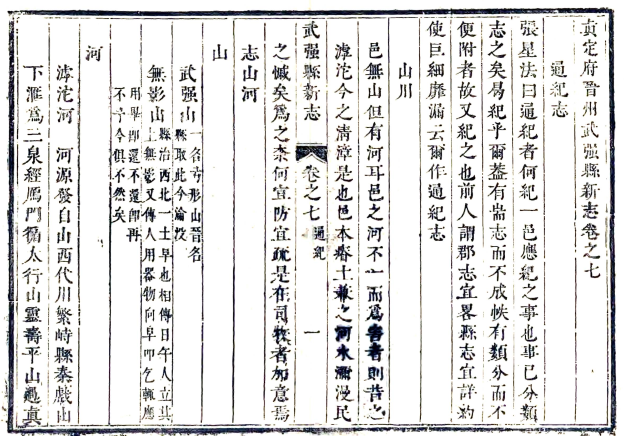 真定府晉州武强縣新志卷之七
通紀志
張星法曰通紀者何紀一邑應紀之事也事已分類
志之矣曷紀乎爾蓋有耑志而不成帙有類分而不
便附者故又紀之也前人謂郡志宜畧縣志宜詳約
使巨細靡漏云爾作通紀志
山川
邑無山但有河耳邑之河不一而爲害者則昔之
滹沱今之淸漳是也邑本瘠土兼之河水瀰漫民
武强縣新志
卷之七
通紀
一
之慽矣爲之柰何宜防宜疏是在司牧者加意焉
志山河
山
武强山
一名夸形山晉名
縣取此今淪没
無影山
縣治西北一土阜也相傳日午人立其
上無影又傳人用器物向阜叩乞輒應
用畢卽還不還卽再
不干今俱不然矣
河
滹沱河
河源發自山西代州繁峙縣泰戲山
下滙爲三泉經鴈門循太行山靈壽平山趨眞